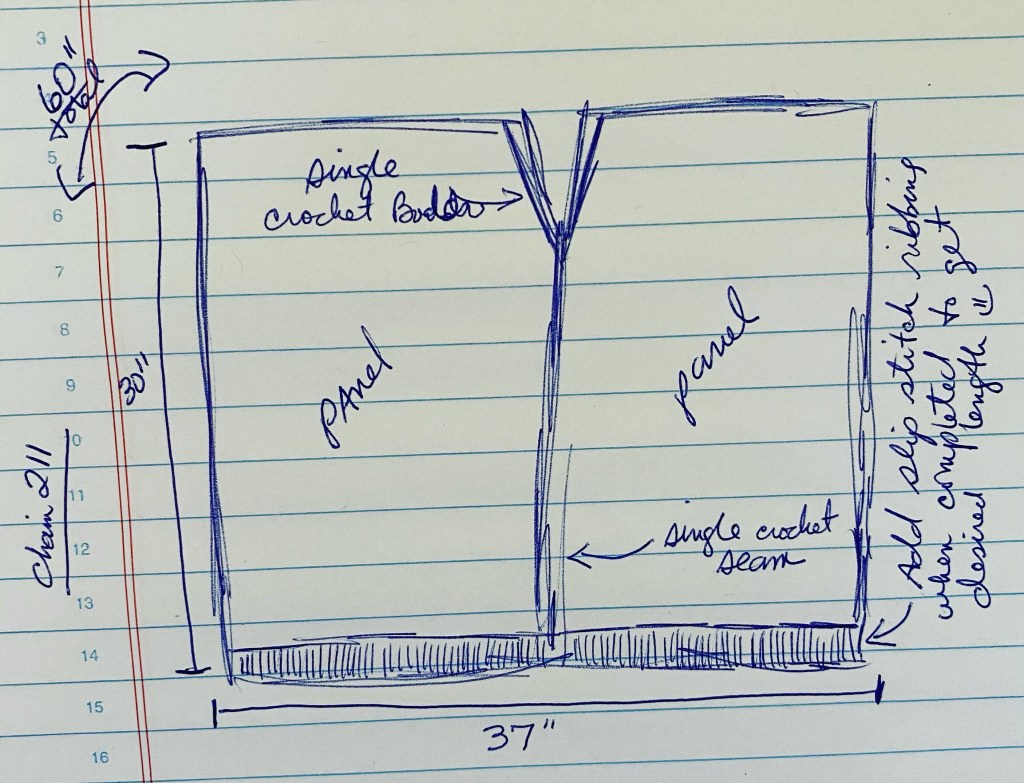 3
5
6
7
8
9
10
11
12
13
14
15
16
60"
total
single
crochet
30"
Chain 211
PAnel
panel
single crochet
seam
Add slip stitch ribbing
when completed to get
desired length
37"